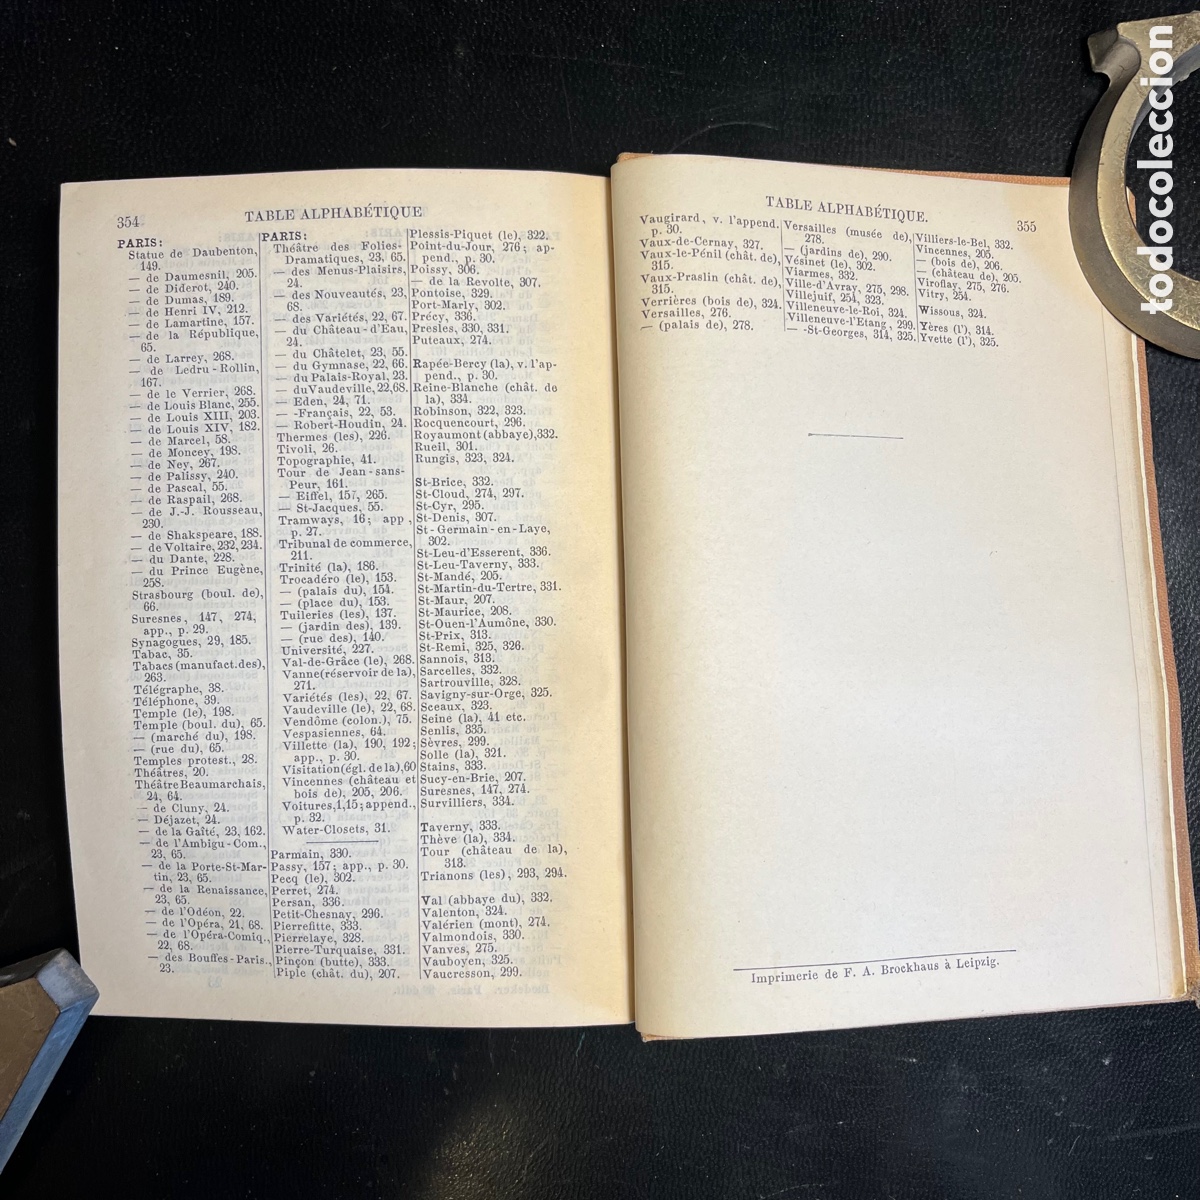 354
TABLE ALPHABÉTIQUE
PARIS:
Statue de Daubenton,
149.
— de Daumesnil, 205.
— de Diderot, 240.
— de Dumas, 189.
— de Henri IV, 212.
— de Lamartine, 157.
— de la République,
65.
— de Larrey, 268.
— de Ledru-Rollin,
167.
— de le Verrier, 268.
— de Louis Blanc, 255.
— de Louis XIII, 203.
— de Louis XIV, 182.
— de Marcel, 58.
— de Moncey, 198.
— de Ney, 267.
— de Palissy, 240.
— de Pascal, 55.
— de Raspail, 268.
— de J.-J. Rousseau,
230.
— de Shakspeare, 188.
— de Voltaire, 232, 234.
— du Dante, 228.
— du Prince Eugène,
258.
Strasbourg (boul. de),
66.
Suresnes, 147, 274,
app., p. 29.
Synagogues, 29, 185.
Tabac, 35.
Tabacs (manufact. des),
263.
Télégraphe, 38.
Téléphone, 39.
Temple (le), 198.
Temple (boul. du), 65.
— (marché du), 198.
— (rue du), 65.
Temples protest., 28.
Théâtres, 20.
Théâtre Beaumarchais,
24, 64.
— de Cluny, 24.
— Déjazet, 24.
— de la Gaîté, 23, 162.
— de l'Ambigu-Com.,
23, 65.
— de la Porte-St-Mar-
tin, 23, 65.
— de la Renaissance,
23, 65.
— de l'Odéon, 22.
— de l'Opéra, 21, 68.
— de l'Opéra-Comiq.,
22, 68.
— des Bouffes-Paris.,
23.
PARIS:
Théâtre des Folies-
Dramatiques, 23, 65.
— des Menus-Plaisirs,
24.
— des Nouveautés, 23,
68.
— des Variétés, 22, 67.
— du Château-d'Eau,
24.
— du Châtelet, 23, 55.
— du Gymnase, 22, 66.
— du Palais-Royal, 23.
— du Vaudeville, 22, 68.
— Eden, 24, 71.
— -Français, 22, 53.
— Robert-Houdin, 24.
Thermes (les), 226.
Tivoli, 26.
Topographie, 41.
Tour de Jean-sans-
Peur, 161.
— Eiffel, 157, 265.
— St-Jacques, 55.
Tramways, 16; app,
p. 27.
Tribunal de commerce,
211.
Trinité (la), 186.
Trocadéro (le), 153.
— (palais du), 154.
— (place du), 153.
Tuileries (les), 137.
— (jardin des), 139.
— (rue des), 140.
Université, 227.
Val-de-Grâce (le), 268.
Vanne (réservoir de la),
271.
Variétés (les), 22, 67.
Vaudeville (le), 22, 68.
Vendôme (colon.), 75.
Vespasiennes, 64.
Villette (la), 190, 192;
app., p. 30.
Visitation (égl. de la), 60
Vincennes (château et
bois de), 205, 206.
Voitures, 1, 15; append.,
p. 32.
Water-Closets, 31.
Parmain, 330.
Passy, 157; app., p. 30.
Pecq (le), 302.
Perret, 274.
Persan, 336.
Petit-Chesnay, 296.
Pierrefitte, 333.
Pierrelaye, 328.
Pierre-Turquaise, 331.
Pinçon (butte), 333.
Piple (chât. du), 207.
Plessis-Piquet (le), 322.
Point-du-Jour, 276; ap-
pend., p. 30.
Poissy, 306.
— de la Revolte, 307.
Pontoise, 329.
Port-Marly, 302.
Précy, 336.
Presles, 330, 331.
Puteaux, 274.
Rapée-Bercy (la), v. l'ap-
pend., p. 30.
Reine-Blanche (chât. de
la), 334.
Robinson, 322, 323.
Rocquencourt, 296.
Royaumont (abbaye), 332.
Rueil, 301.
Rungis, 323, 324.
St-Brice, 332.
St-Cloud, 274, 297.
St-Cyr, 295.
St-Denis, 307.
St-Germain-en-Laye,
302.
St-Leu-d'Esserent, 336.
St-Leu-Taverny, 333.
St-Mandé, 205.
St-Martin-du-Tertre, 331.
St-Maur, 207.
St-Maurice, 208.
St-Ouen-l'Aumône, 330.
St-Prix, 313.
St-Remi, 325, 326.
Sannois, 313.
Sarcelles, 332.
Sartrouville, 328.
Savigny-sur-Orge, 325.
Sceaux, 323.
Seine (la), 41 etc.
Senlis, 335.
Sèvres, 299.
Solle (la), 321.
Stains, 333.
Sucy-en-Brie, 207.
Suresnes, 147, 274.
Survilliers, 334.
Taverny, 333.
Thève (la), 334.
Tour (château de la),
313.
Trianons (les), 293, 294.
Val (abbaye du), 332.
Valenton, 324.
Valérien (mont), 274.
Valmondois, 330.
Vanves, 275.
Vauboyen, 325.
Vaucresson, 299.
TABLE ALPHABÉTIQUE.
355
Vaugirard, v. l'append.
p. 30.
Vaux-de-Cernay, 327.
Vaux-le-Pénil (chât. de),
315.
Vaux-Praslin (chât. de),
315.
Verrières (bois de), 324.
Versailles, 276.
— (palais de), 278.
Versailles (musée de),
278.
— (jardins de), 290.
Vésinet (le), 302.
Viarmes, 332.
Ville-d'Avray, 275, 298.
Villejuif, 254, 323.
Villeneuve-le-Roi, 324.
Villeneuve-l'Etang, 299.
— -St-Georges, 314, 325.
Villiers-le-Bel, 332.
Vincennes, 205.
— (bois de), 206.
— (château de), 205.
Viroflay, 275, 276.
Vitry, 254.
Wissous, 324.
Yères (l'), 314.
Yvette (l'), 325.
Imprimerie de F. A. Brockhaus à Leipzig.
todocoleccion